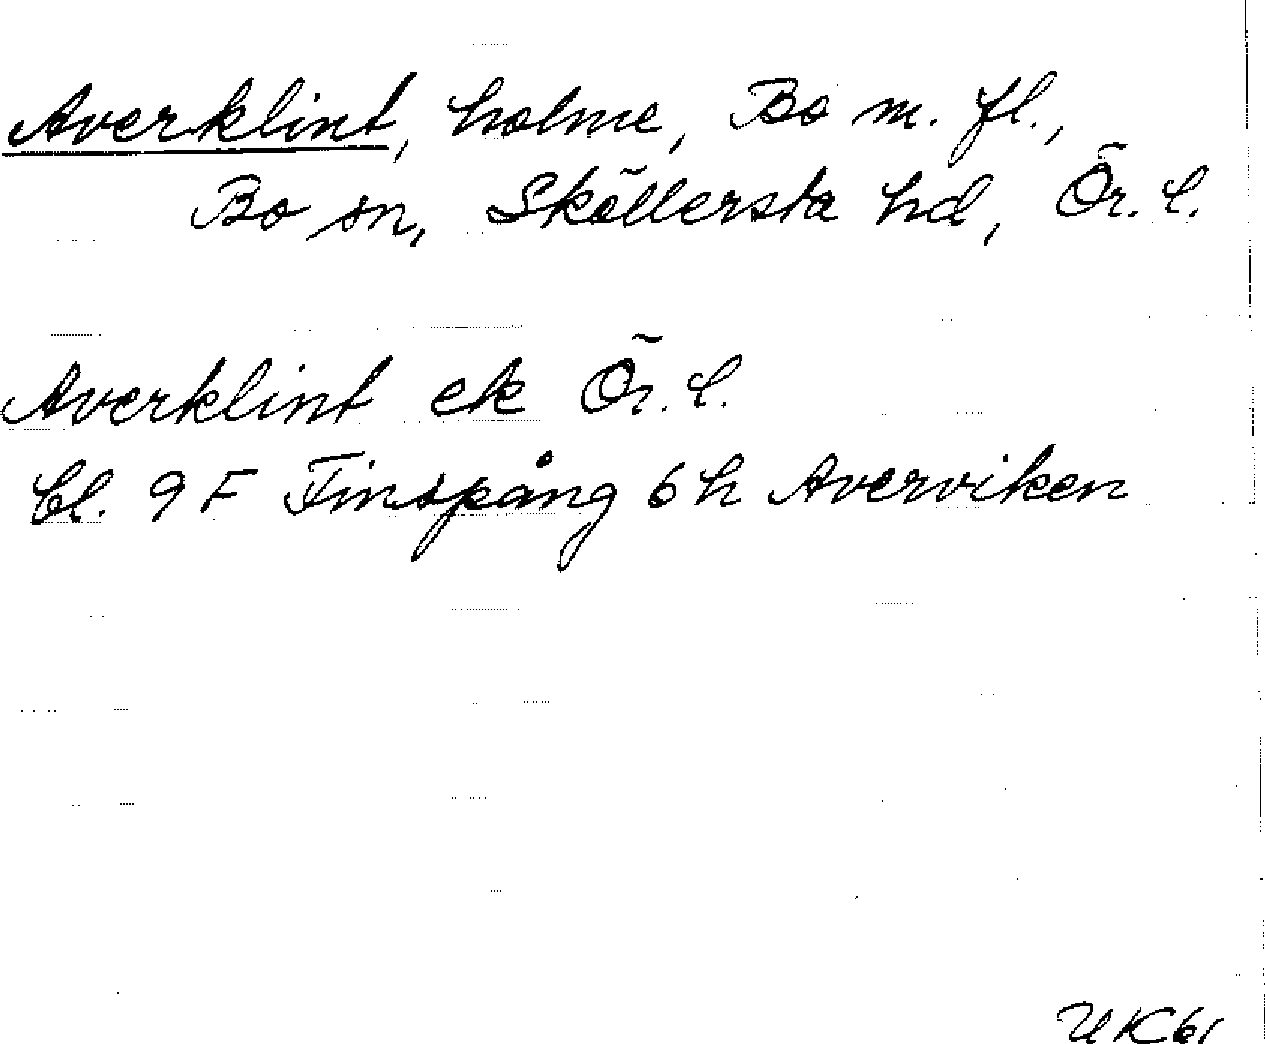 Averklint, holme, Bo m. fl.,
Bo sn, Sköllersta hd, Ör. l.
Averklint ek Ör. l.
bl. 9 F Finspång 6 h Averviken